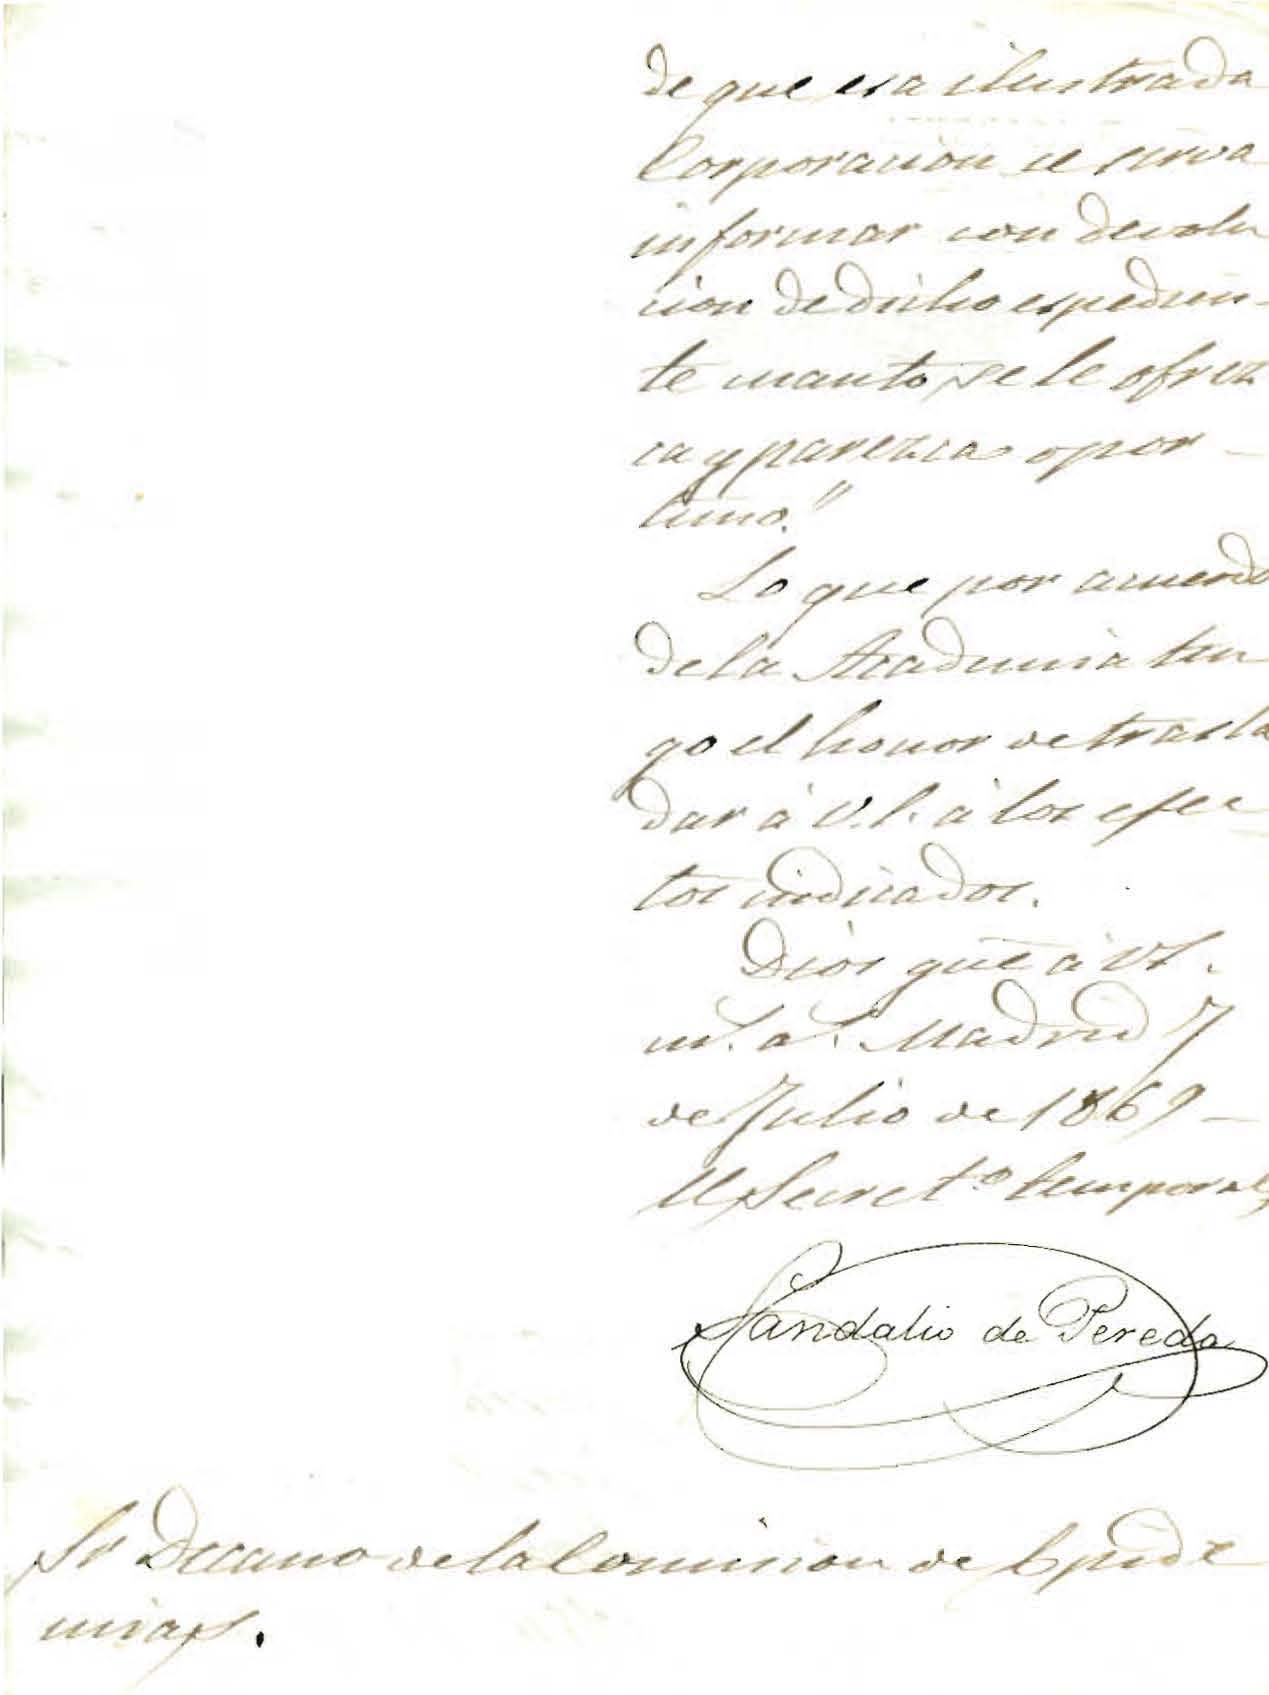 de que esa ilustrada
Corporacion se sirva
informar con devolu
cion de dicho espedien-
te cuanto se le ofrez
ca y parezca opor-
tuno."
Lo que por acuerdo
de la Academia ten
go el honor de trasla
dar á V.S. á los efec
tos indicados.
Dios gue á VS.
ms. as. Madrid 7
de Julio de 1869-
El Secret.º temporal,
Sandalio de Pereda
Sr Decano de la Comision de Epide
mias.